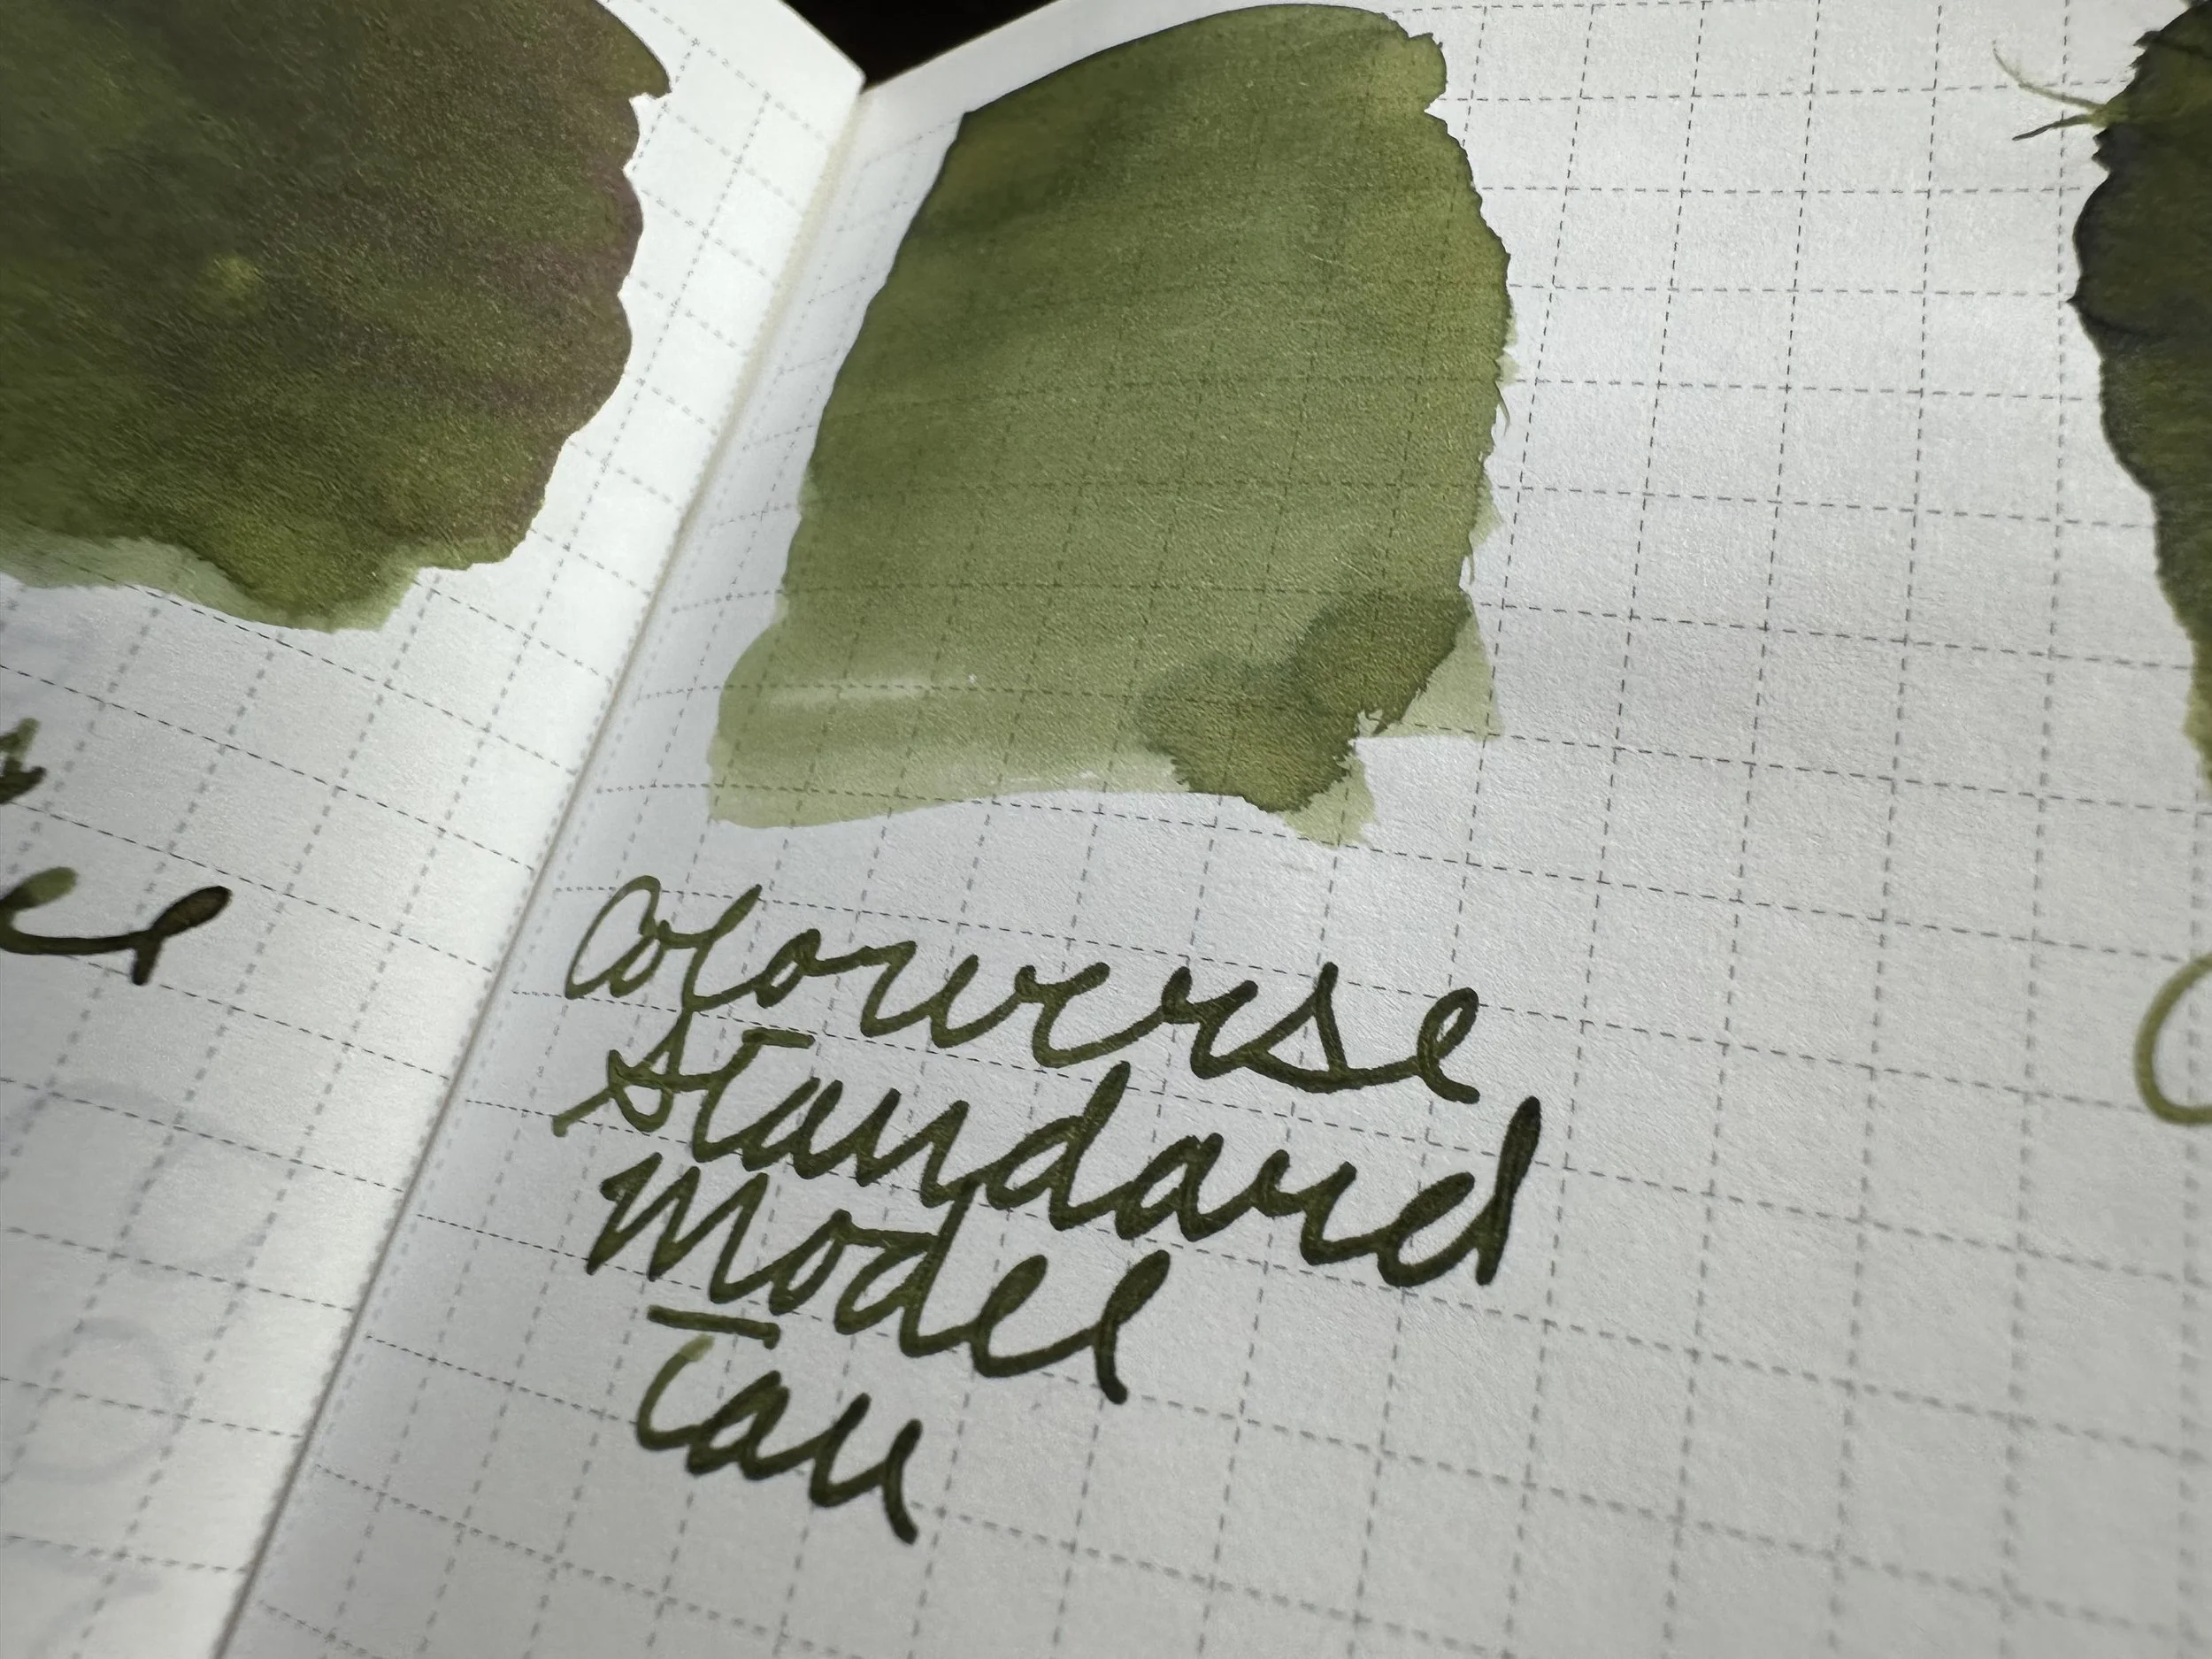 Colorverse
Standard
Model
Tau